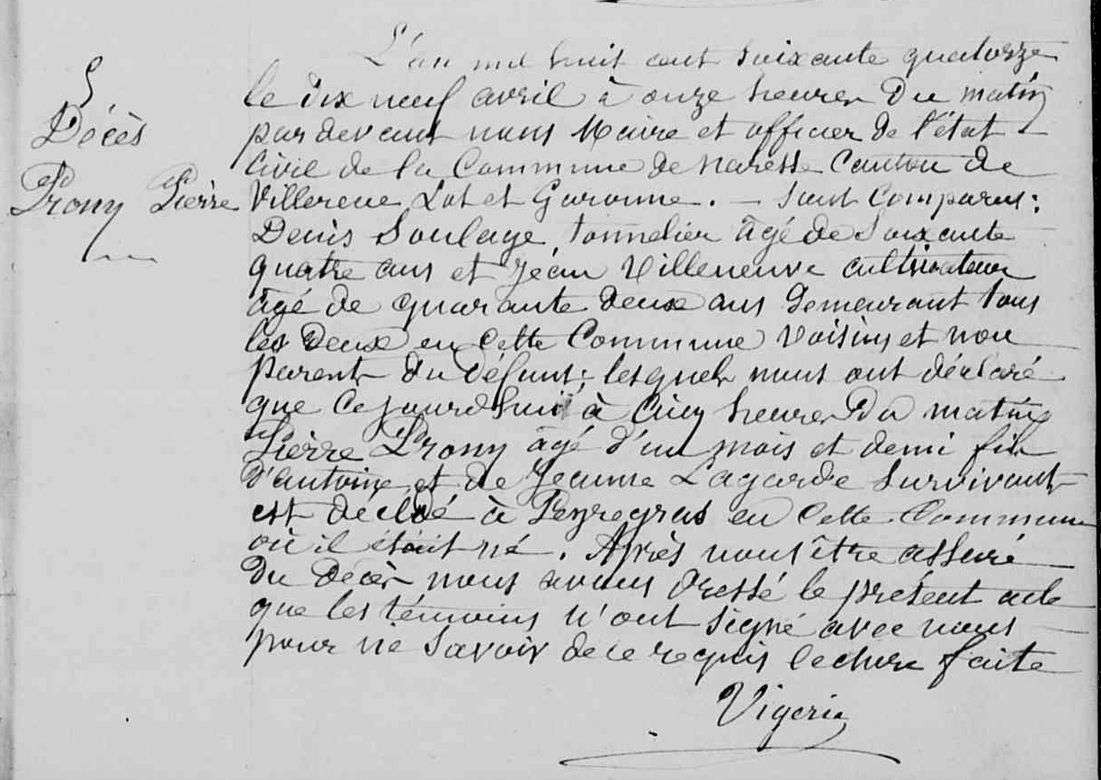 5
Décès
Prony Pierre
L'an mil huit cent soixante quatorze
le dix neuf avril à onze heures du matin
par devant nous Maire et officier de l'état
Civil de la Commune de Naresse Canton de
Villereue Lot et Garonne. — Sont Comparus:
Denis Soulage, tonnelier âgé de Soixante
quatre ans et Jean Villeneuve cultivateur
âgé de quarante deux ans Demeurant tous
les Deux en Cette Commune Voisins et non
parents du Défunt; lesquels nous ont déclaré
que Cejourd'hui à Cinq heures Du matin
Pierre Prony âgé d'un mois et demi fils
D'antoine et de Jeanne Lagarde Survivants
est décédé à Peyregras en Cette Commune
où il était né. Après nous être assuré
Du Décès nous avons Dressé le présent acte
que les témoins n'ont signé avec nous
pour ne Savoir de ce requis lecture faite
Vigerie